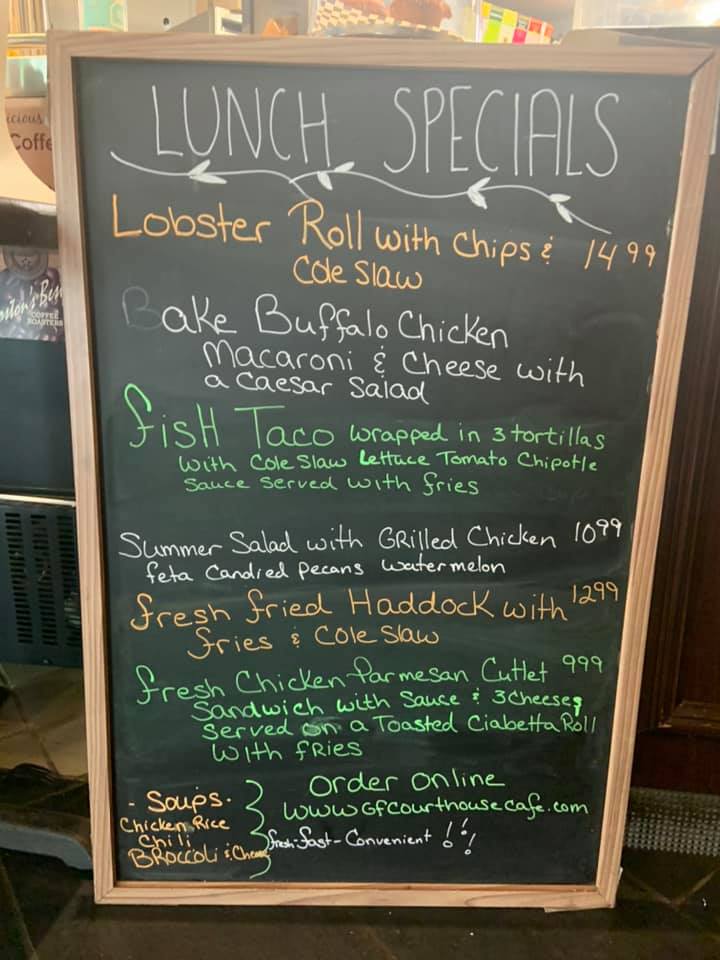 LUNCH SPECIALS
Lobster Roll with Chips & 14 99
Cole Slaw
Bake Buffalo Chicken
Macaroni & Cheese with
a Caesar Salad
fisH Taco wrapped in 3 tortillas
with Cole Slaw Lettuce Tomato Chipotle
Sauce served with fries
Summer Salad with GRilled Chicken 10 99
feta Candied pecans watermelon
fresh fried Haddock with 12 99
fries & Cole Slaw
fresh Chicken Parmesan Cutlet 9 99
Sandwich with Sauce & 3 Cheeses
served on a Toasted Ciabetta Roll
with fRies
- Soups -
Chicken Rice
Chili
BRoccoli & Cheese
Order Online
www GFCourthousecafe.com
fresh-fast-Convenient !!!
icious
Coffe
COFFEE
ROASTERS